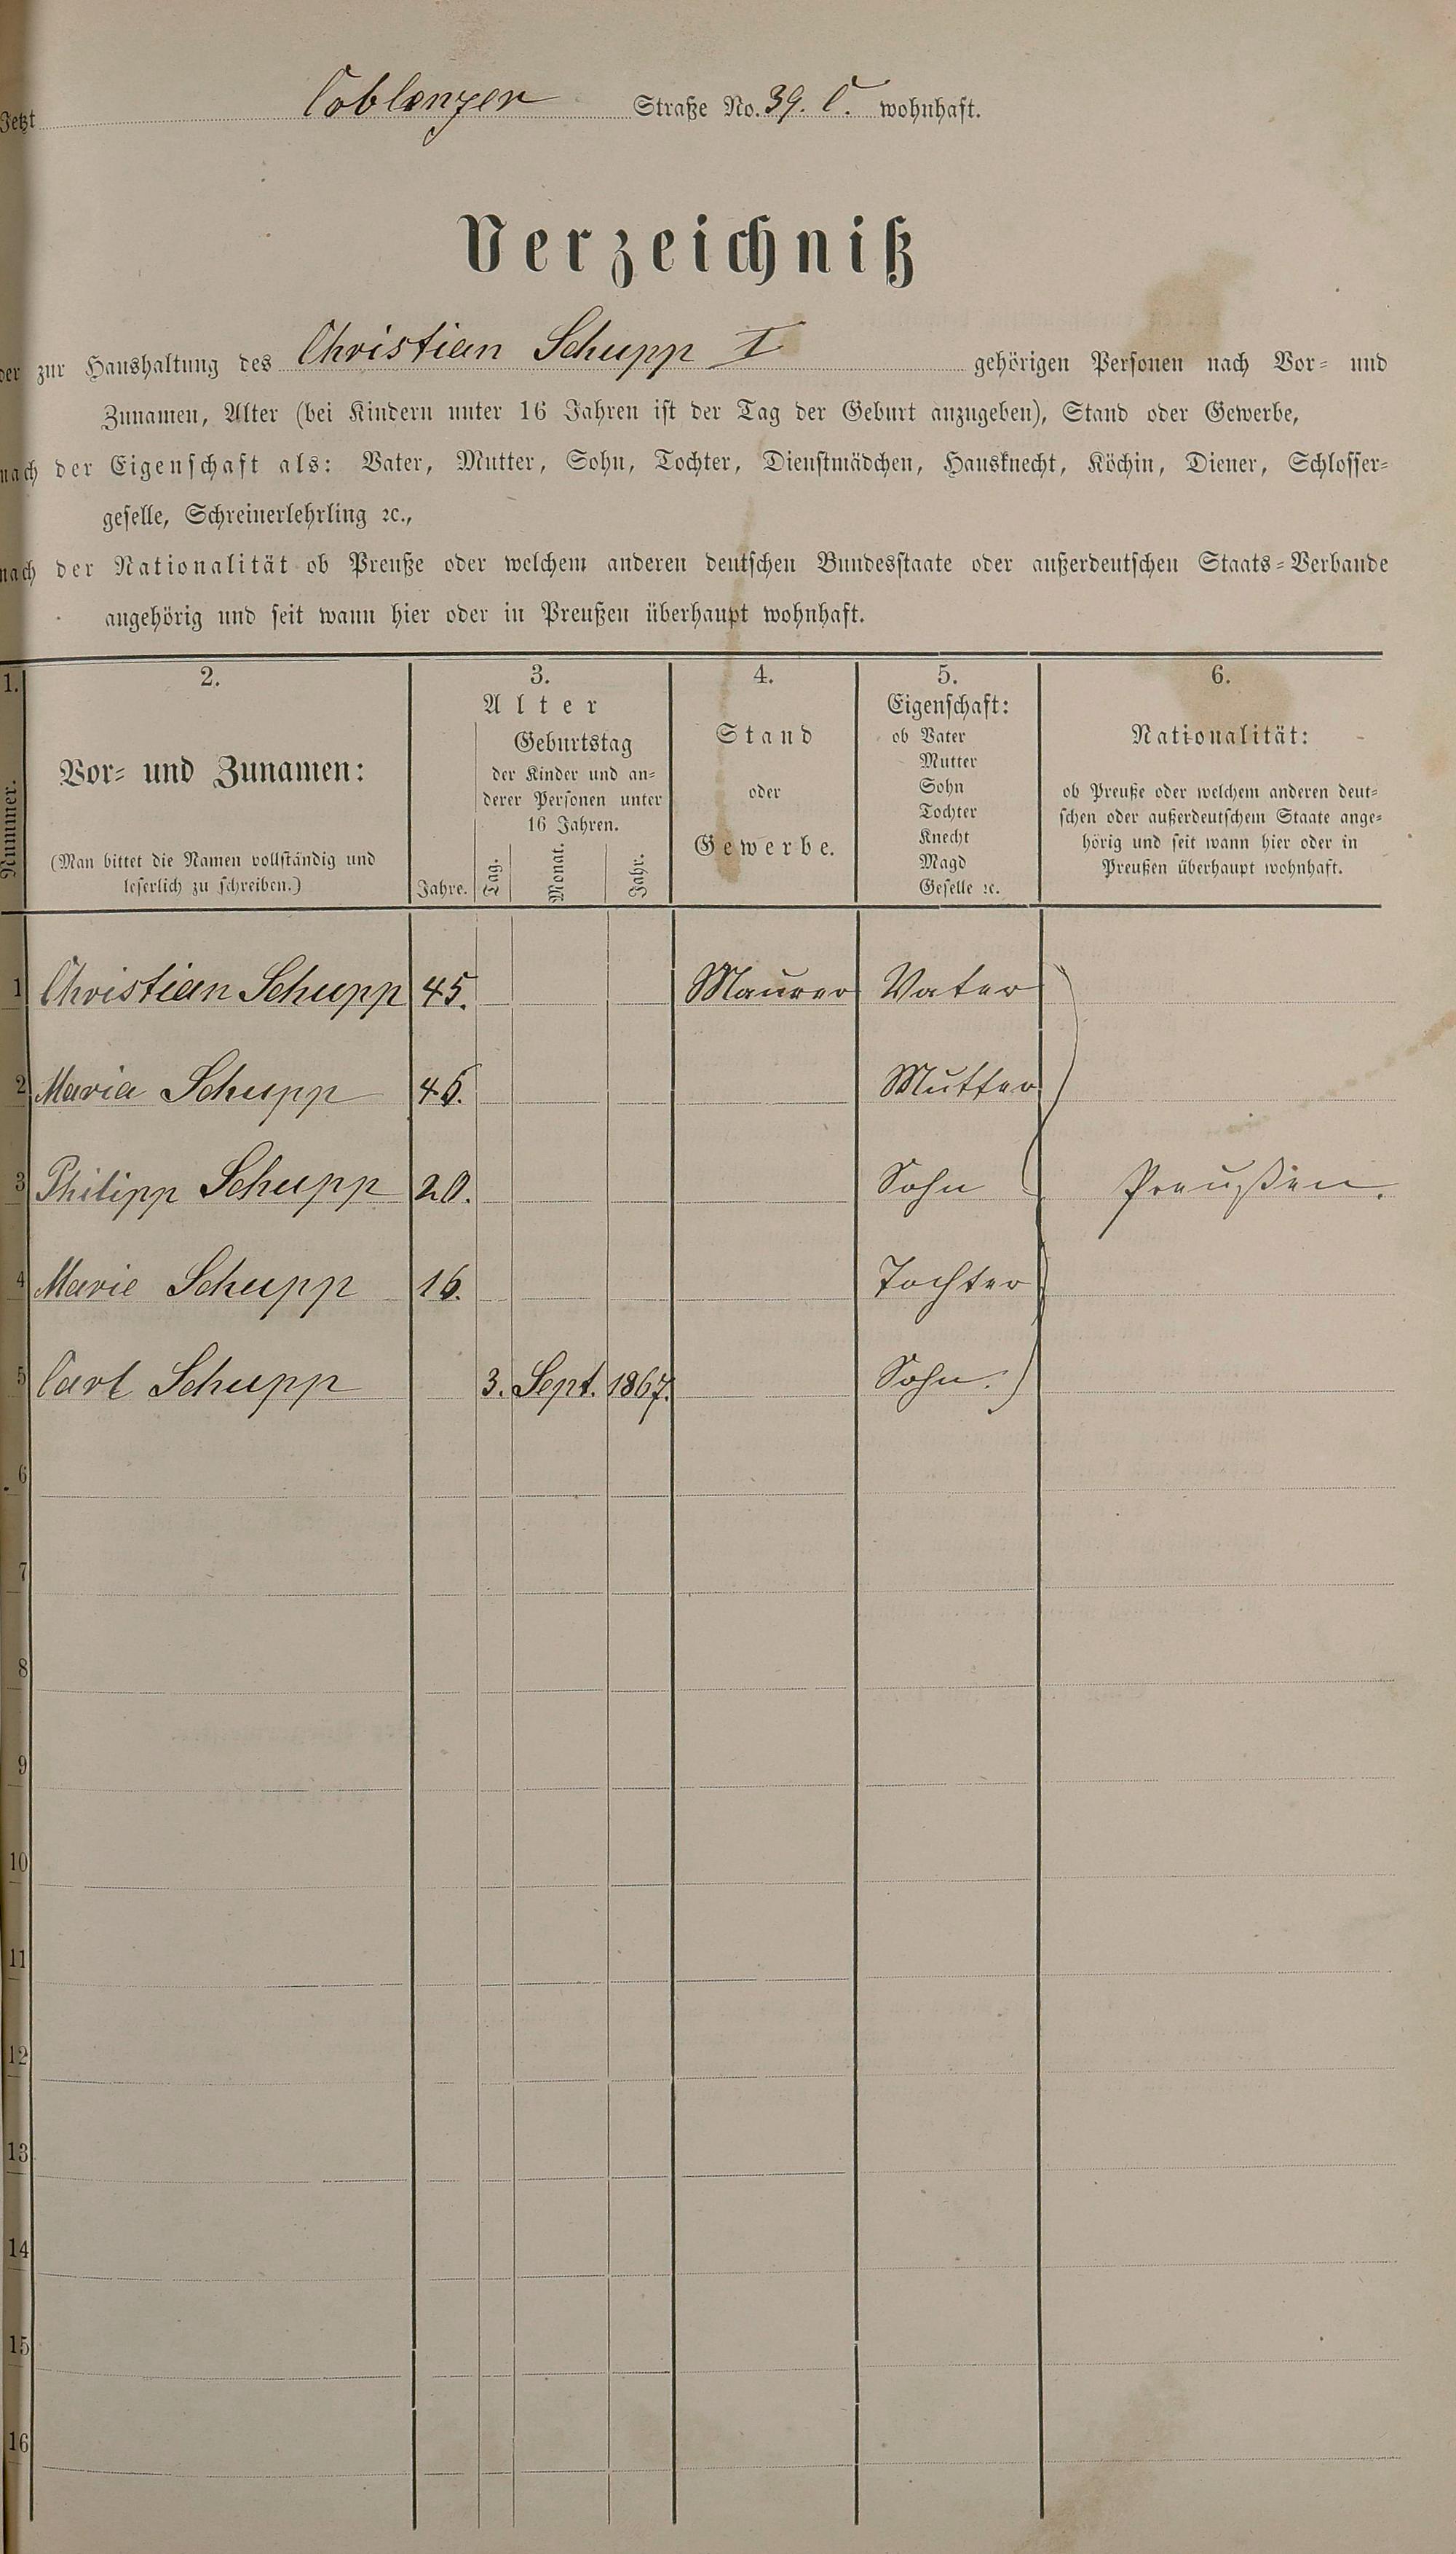 Jetzt Coblenzer Straße No. 39. C. wohnhaft.
Verzeichniß
der zur Haushaltung des Christian Schupp I gehörigen Personen nach Vor- und
Zunamen, Alter (bei Kindern unter 16 Jahren ist der Tag der Geburt anzugeben), Stand oder Gewerbe,
nach der Eigenschaft als: Vater, Mutter, Sohn, Tochter, Dienstmädchen, Hausknecht, Köchin, Diener, Schlosser-
geselle, Schreinerlehrling ꝛc.,
nach der Nationalität ob Preuße oder welchem anderen deutschen Bundesstaate oder außerdeutschen Staats-Verbande
angehörig und seit wann hier oder in Preußen überhaupt wohnhaft.
1.
Nummer.
2.
Vor- und Zunamen:
(Man bittet die Namen vollständig und
leserlich zu schreiben.)
3.
Alter
Jahre.
Geburtstag
der Kinder und an-
derer Personen unter
16 Jahren.
Tag. Monat. Jahr.
4.
Stand
oder
Gewerbe.
5.
Eigenschaft:
ob Vater
Mutter
Sohn
Tochter
Knecht
Magd
Geselle ꝛc.
6.
Nationalität:
ob Preuße oder welchem anderen deut-
schen oder außerdeutschem Staate ange-
hörig und seit wann hier oder in
Preußen überhaupt wohnhaft.
1 Christian Schupp 45. Maurer Vater
2 Maria Schupp Mutter
3 Philipp Schupp 20. Sohn Preußen.
4 Marie Schupp 16. Tochter
5 Carl Schupp 3. Sept. 1867. Sohn.
6
7
8
9
10
11
12
13
14
15
16